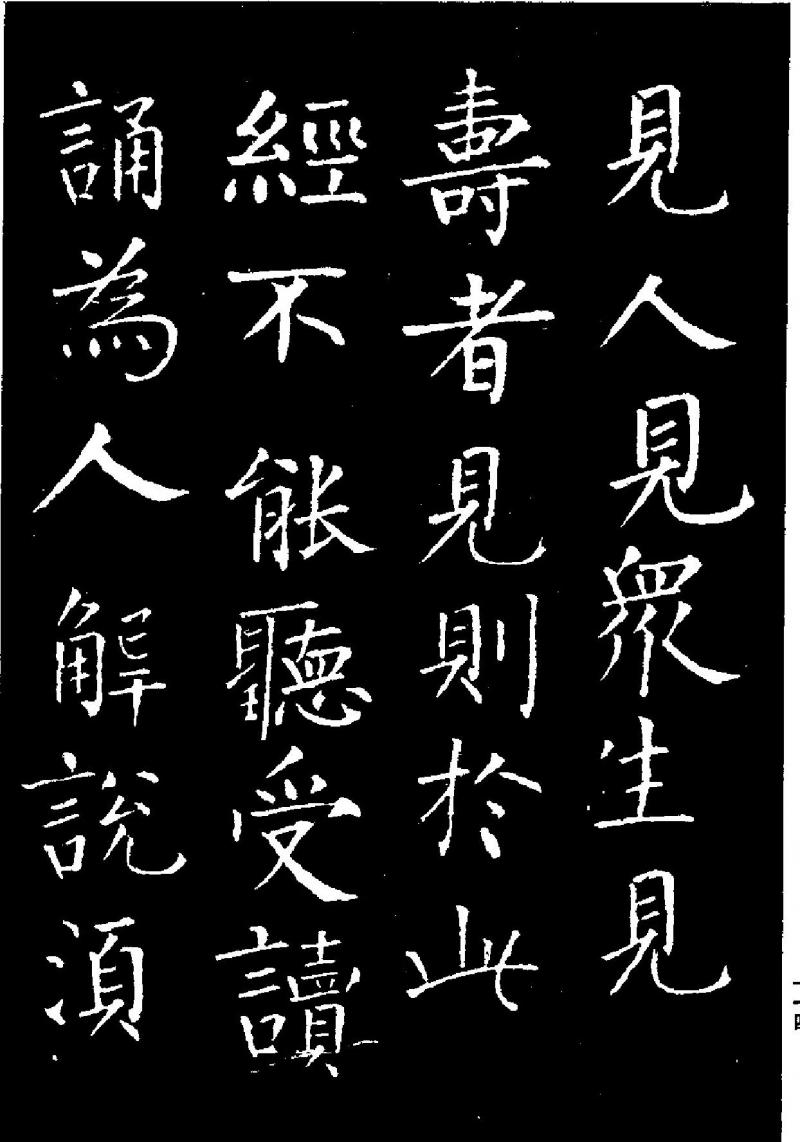 見人見眾生見
壽者見則於此
經不能聽受讀
誦為人解説須